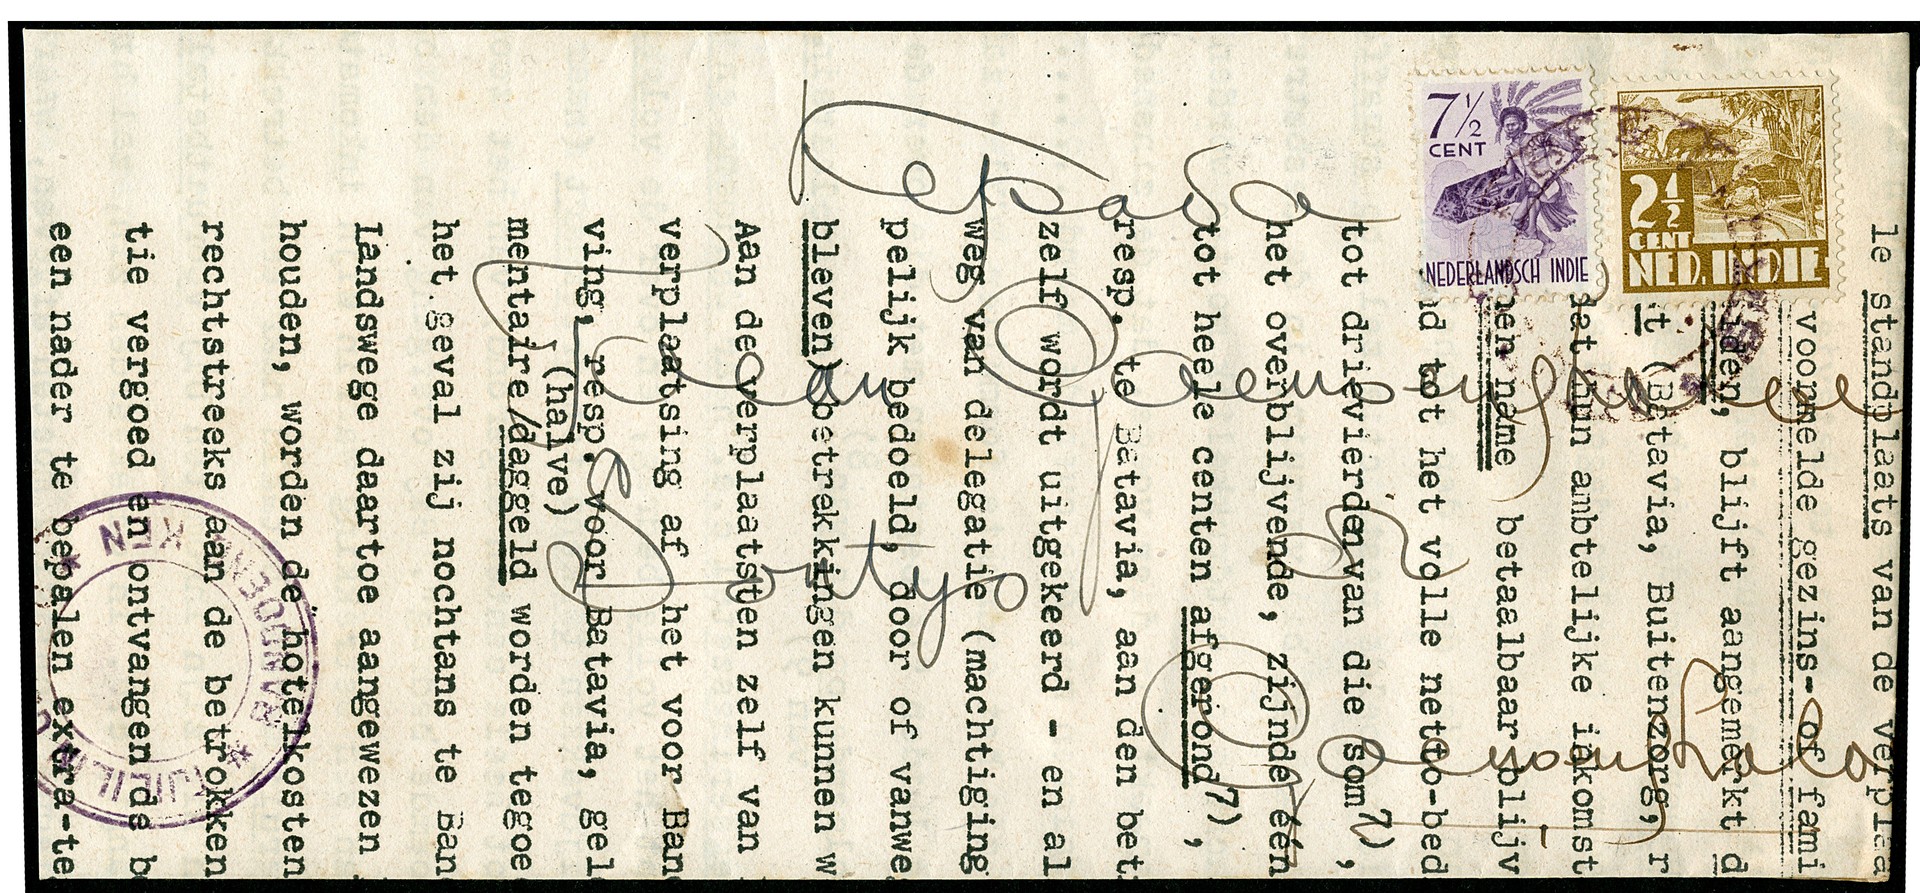 7½
CENT
NEDERLANDSCH INDIE
2½
CENT
NED. INDIE
Kepada
Toean
di
le standplaats van de verplaa
voormelde gezins- of fami
iden, blijft aangemerkt d
it (Batavia, Buitenzorg, r
dat hun ambtelijke inkomst
hen name betaalbaar blijv
nd tot het volle netto-bed
tot drievierden van die som7),
het overblijvende, zijnde één
tot heele centen afgerond7),
resp. te Batavia, aan den bet
zelf wordt uitgekeerd - en al
weg van delegatie (machtiging
pelijk bedoeld, door of vanwe
bleven) betrekkingen kunnen w
Aan de verplaatsten zelf van
verplaatsing af het voor Ban
ving, resp. voor Batavia, gel
(halve)
mentaire/daggeld worden tegoe
het geval zij nochtans te Ban
Landswege daartoe aangewezen
houden, worden de hotelkosten
rechtstreeks aan de betrokken
tie vergoed en ontvangen de b
een nader te bepalen extra-te